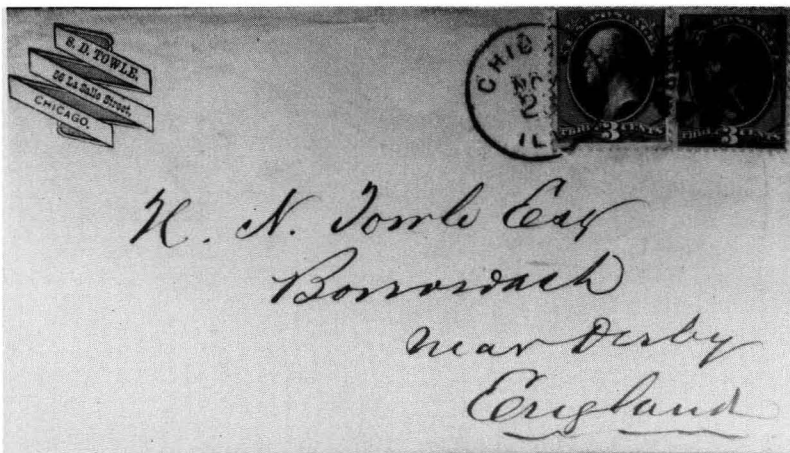 S. D. TOWLE,
56 La Salle Street,
CHICAGO.
CHIC
2
ILL
U.S. POSTAGE
THREE 3 CENTS
POSTAGE
THREE 3 CENTS
H. N. Towle Esq
Borrowash
near Derby
England